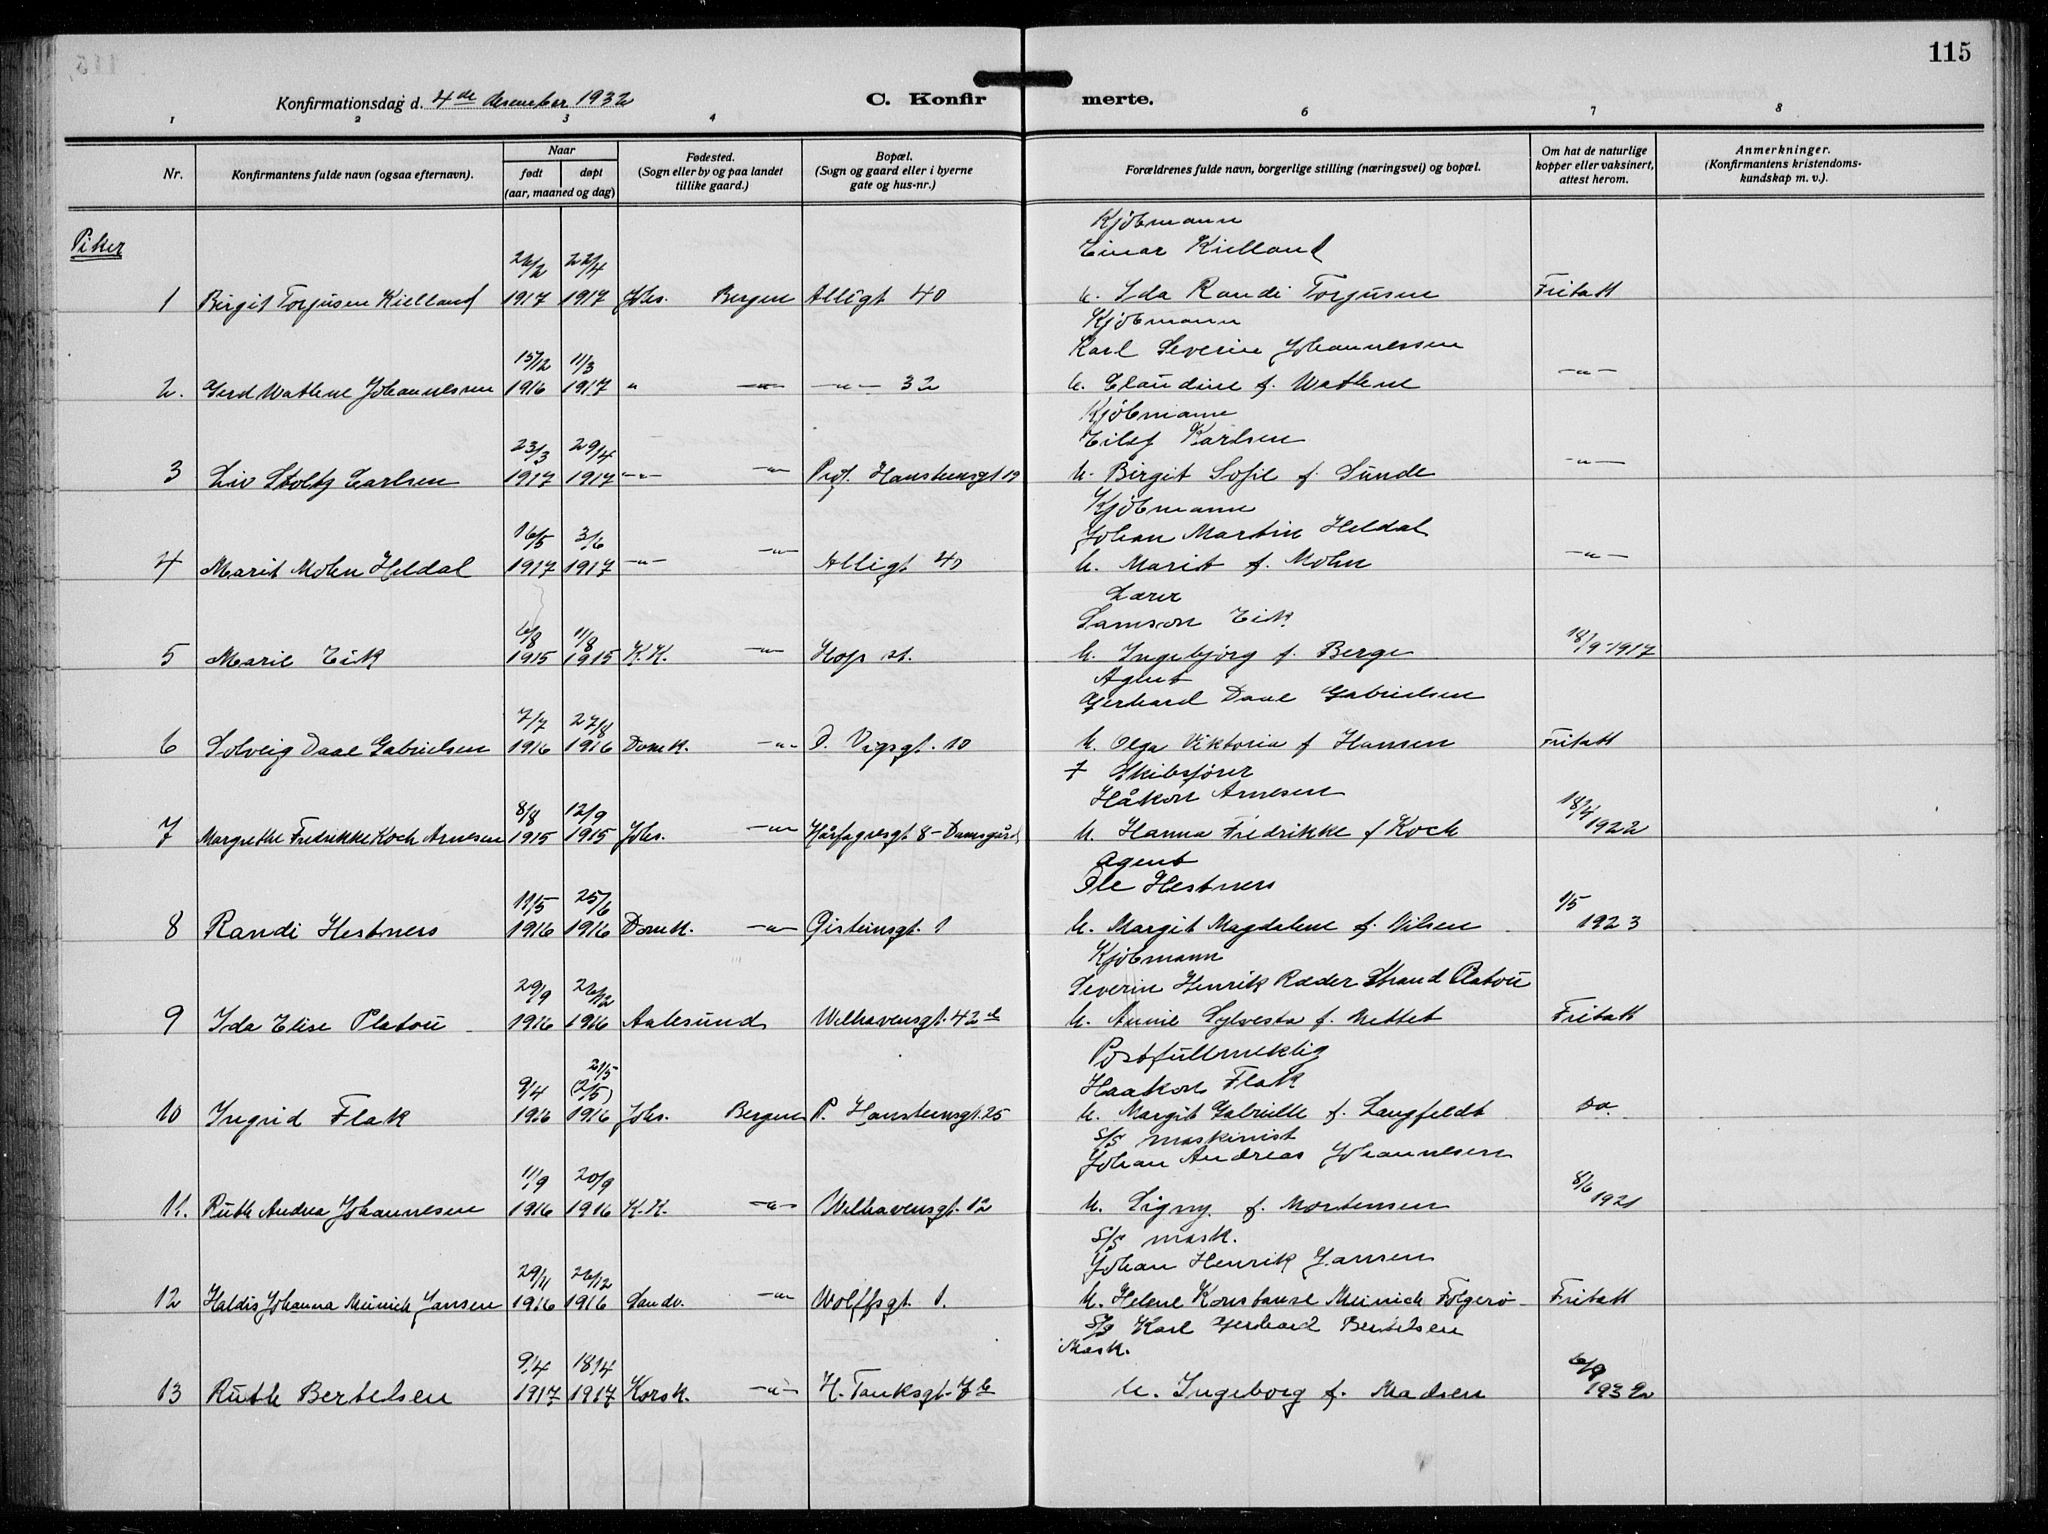 115
Konfirmationsdag d. 4de desember 1932
C. Konfirmerte.
1 2 3 4 6 7 8
Nr.
Konfirmantens fulde navn (ogsaa efternavn).
Naar
født døpt
(aar, maaned og dag)
Fødested.
(Sogn eller by og paa landet
tillike gaard.)
Bopæl.
(Sogn og gaard eller i byerne
gate og hus-nr.)
Forældrenes fulde navn, borgerlige stilling (næringsvei) og bopæl.
Om hat de naturlige
kopper eller vaksinert,
attest herom.
Anmerkninger.
(Konfirmantens kristendoms-
kundskap m. v.).
Piker
Kjøbmann
Einar Kielland
26/2 22/4
1 Birgit Torjusen Kielland 1917 1917 Johs. Bergen Allégt 40 u. Ida Randi Torjusen Fritatt
Kjøbmann
Karl Severin Johannessen
15/12 11/3
2. Gerd Wathne Johannesen 1916 1917 " —"— —"— 32 u. Claudine f. Wathne —"—
Kjøbmann
Eilef Karlsen
23/3 29/4
3 Liv Stoltz Carlsen 1917 1917 —"— —"— Prof. Hansteensgt 19 u. Birgit Sofie f. Sunde —"—
Kjøbmann
Johan Martin Heldal
16/5 3/6
4 Marit Mohn Heldal 1917 1917 —"— —"— Allégt 40 u. Marit f. Mohn —"—
Lærer
Samson Eik
6/8 11/8
5 Marie Eik 1915 1915 K.K. —"— Hop st. u. Ingebjørg f. Berge 18/9 1917
Agent
Gerhard Daae Gabrielsen
7/7 27/8
6 Solveig Daae Gabrielsen 1916 1916 Domk. —"— D. Vigsgt. 10 u. Olga Viktoria f Hansen Fritatt
† Skibsfører
Håkon Arnesen
8/8 12/9
7 Margrethe Fredrikke Koch Arnesen 1915 1915 Johs. —"— Hårfagresgt 8 - Damsgård u. Hanna Fredrikke f Koch 18/4 1922
Agent
Ole Hestnes
11/5 25/6
8 Randi Hestnes 1916 1916 Domk. —"— Øisteinsgt. 1 u. Margit Magdalene f. Nilsen 1/5 1923
Kjøbmann
Severin Henrik Ræder Strand Platou
29/9 26/12
9 Ida Elise Platou 1916 1916 Aalesund Welhavensgt. 42 u. Annie Sylvesta f. Mettet Fritatt
Postfullmektig
Haakon Flak
21/5
9/4 (2/5)
10 Ingrid Flak 1916 1916 Johs. Bergen P. Hansteensgt. 25 u. Margit Gabrielle f. Langfeldt Do.
S/S maskinist
Johan Andreas Johannesen
11/9 20/9
11. Ruth Andrea Johannesen 1916 1916 K.K. —"— Welhavensgt. 12 u. Signy f. Mortensen 8/6 1921
S/S mask.
Johan Henrik Jansen
29/11 26/12
12 Haldis Johanna Meinich Jansen 1916 1916 Sandv. —"— Wolffsgt. 1. u. Helene Konstanse Meinich Følgerø Fritatt
S/S Karl Gerhard Bertelsen
Mask.
9/4 18/4
13 Ruth Bertelsen 1917 1917 Korsk. —"— H. Tanksgt. 7b u. Ingeborg f. Madsen 6/9 1932